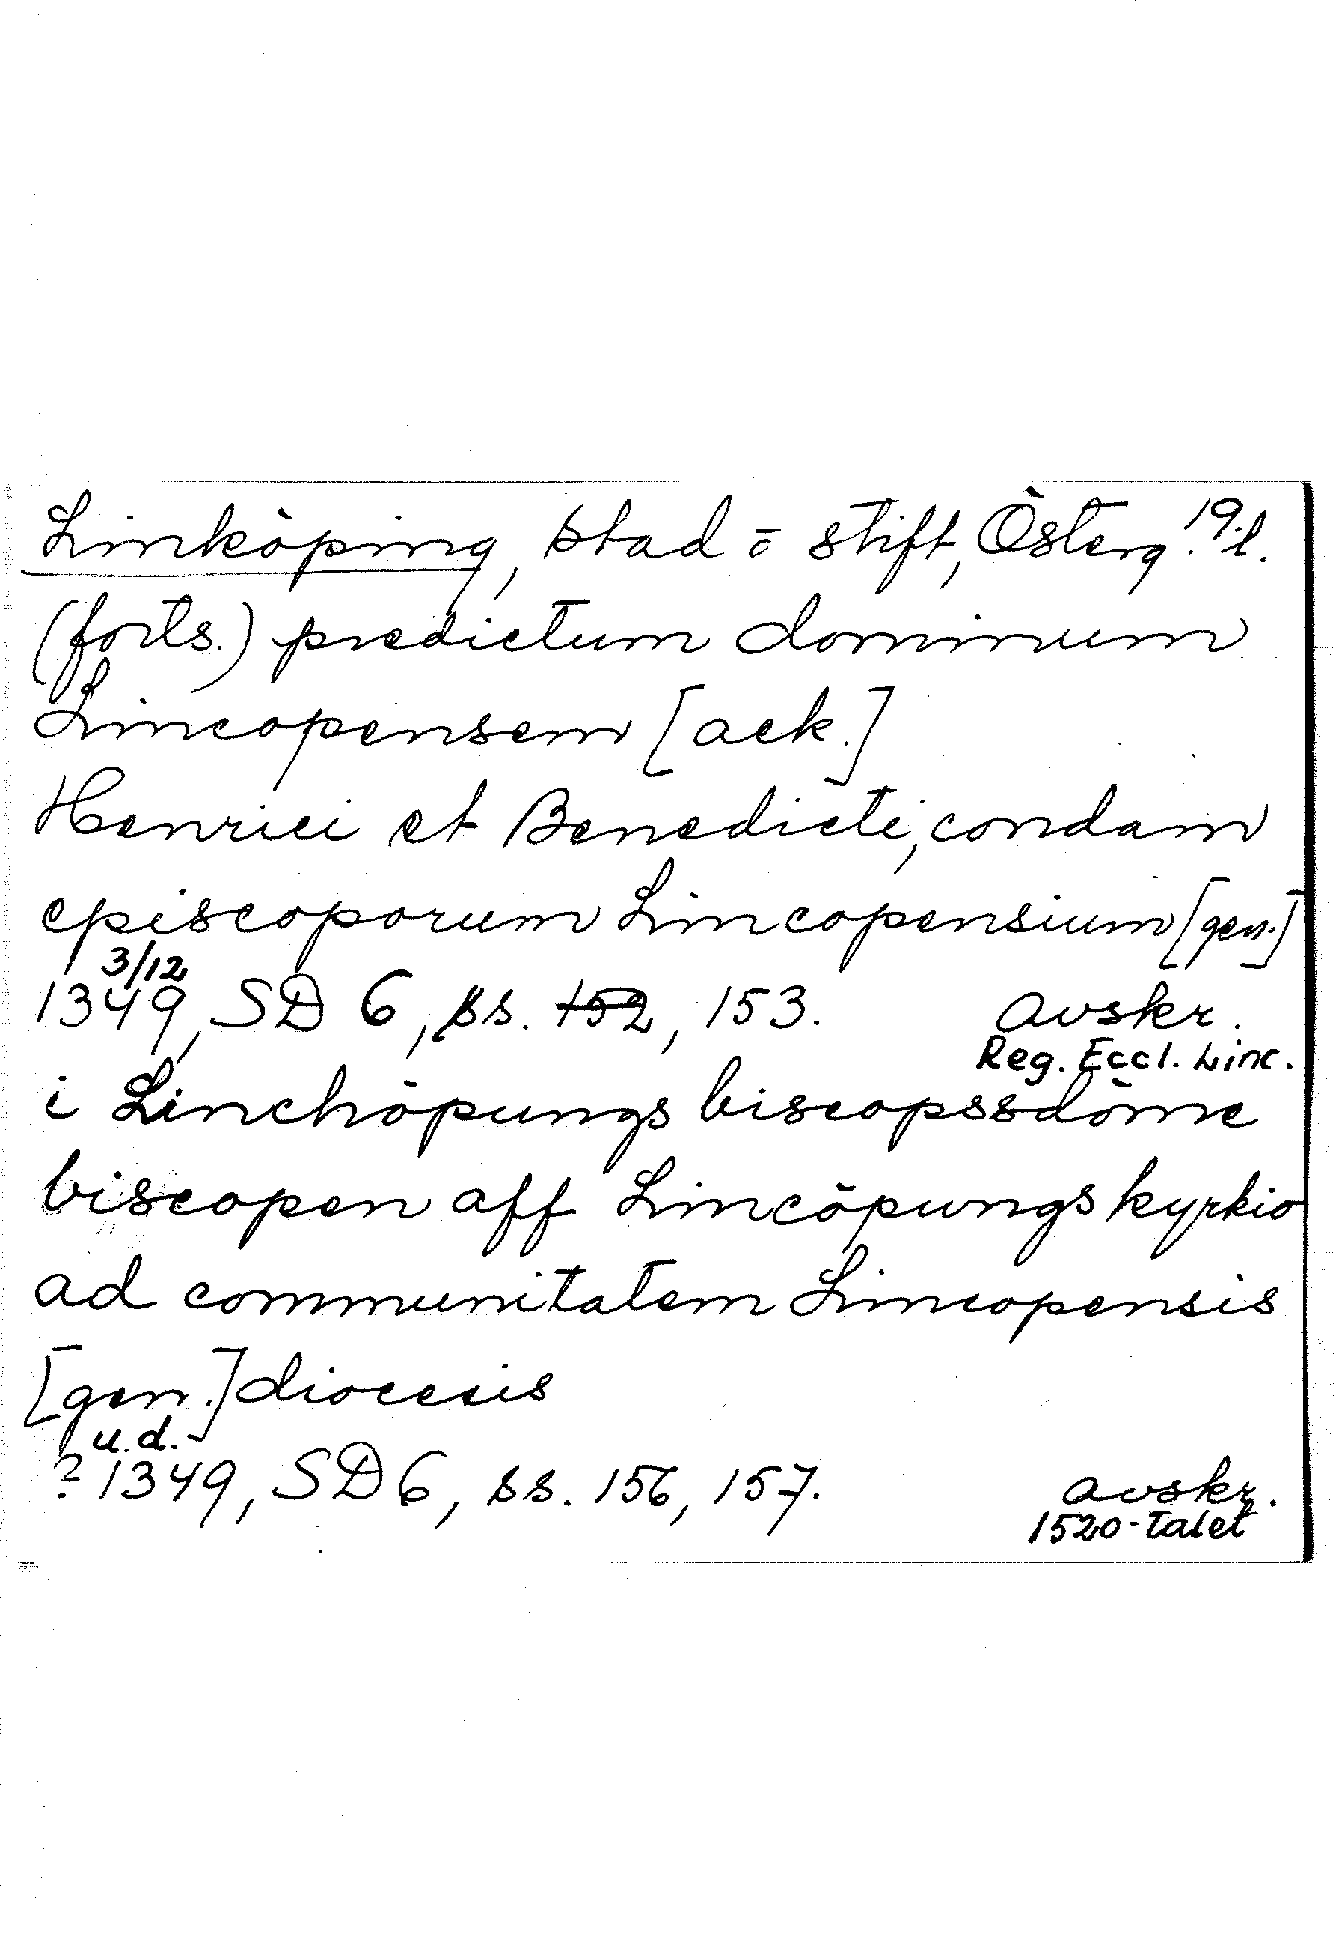 Linköping, stad o stift, Österg. 19.l.
(forts.) predictum dominum
Lincopensem [ack.]
Henrici et Benedicti, condam
episcoporum Lincopensium [gen.]
3/12
1349, SD 6, ss. 152, 153. avskr.
Reg. Eccl. Linc.
i Linchöpungs biscopssdöme
biscopen aff Lincöpungs kyrkio
ad communitatem Lincopensis
[gen.] diocesis
u.d.
? 1349, SD 6, ss. 156, 157. avskr.
1520-talet